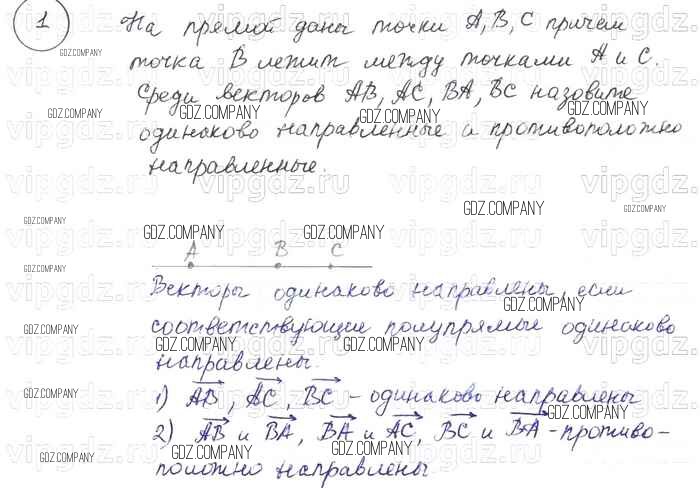 1
На прямой даны точки A, B, C причём
точка B лежит между точками A и C.
Среди векторов AB, AC, BA, BC назовите
одинаково направленные и противоположно
направленные.
A B C
Векторы одинаково направлены, если
соответствующие полупрямые одинаково
направлены.
1) AB, AC, BC - одинаково направлены
2) AB и BA, BA и AC, BC и BA - противо-
положно направлены
GDZ.COMPANY
vipgdz.ru